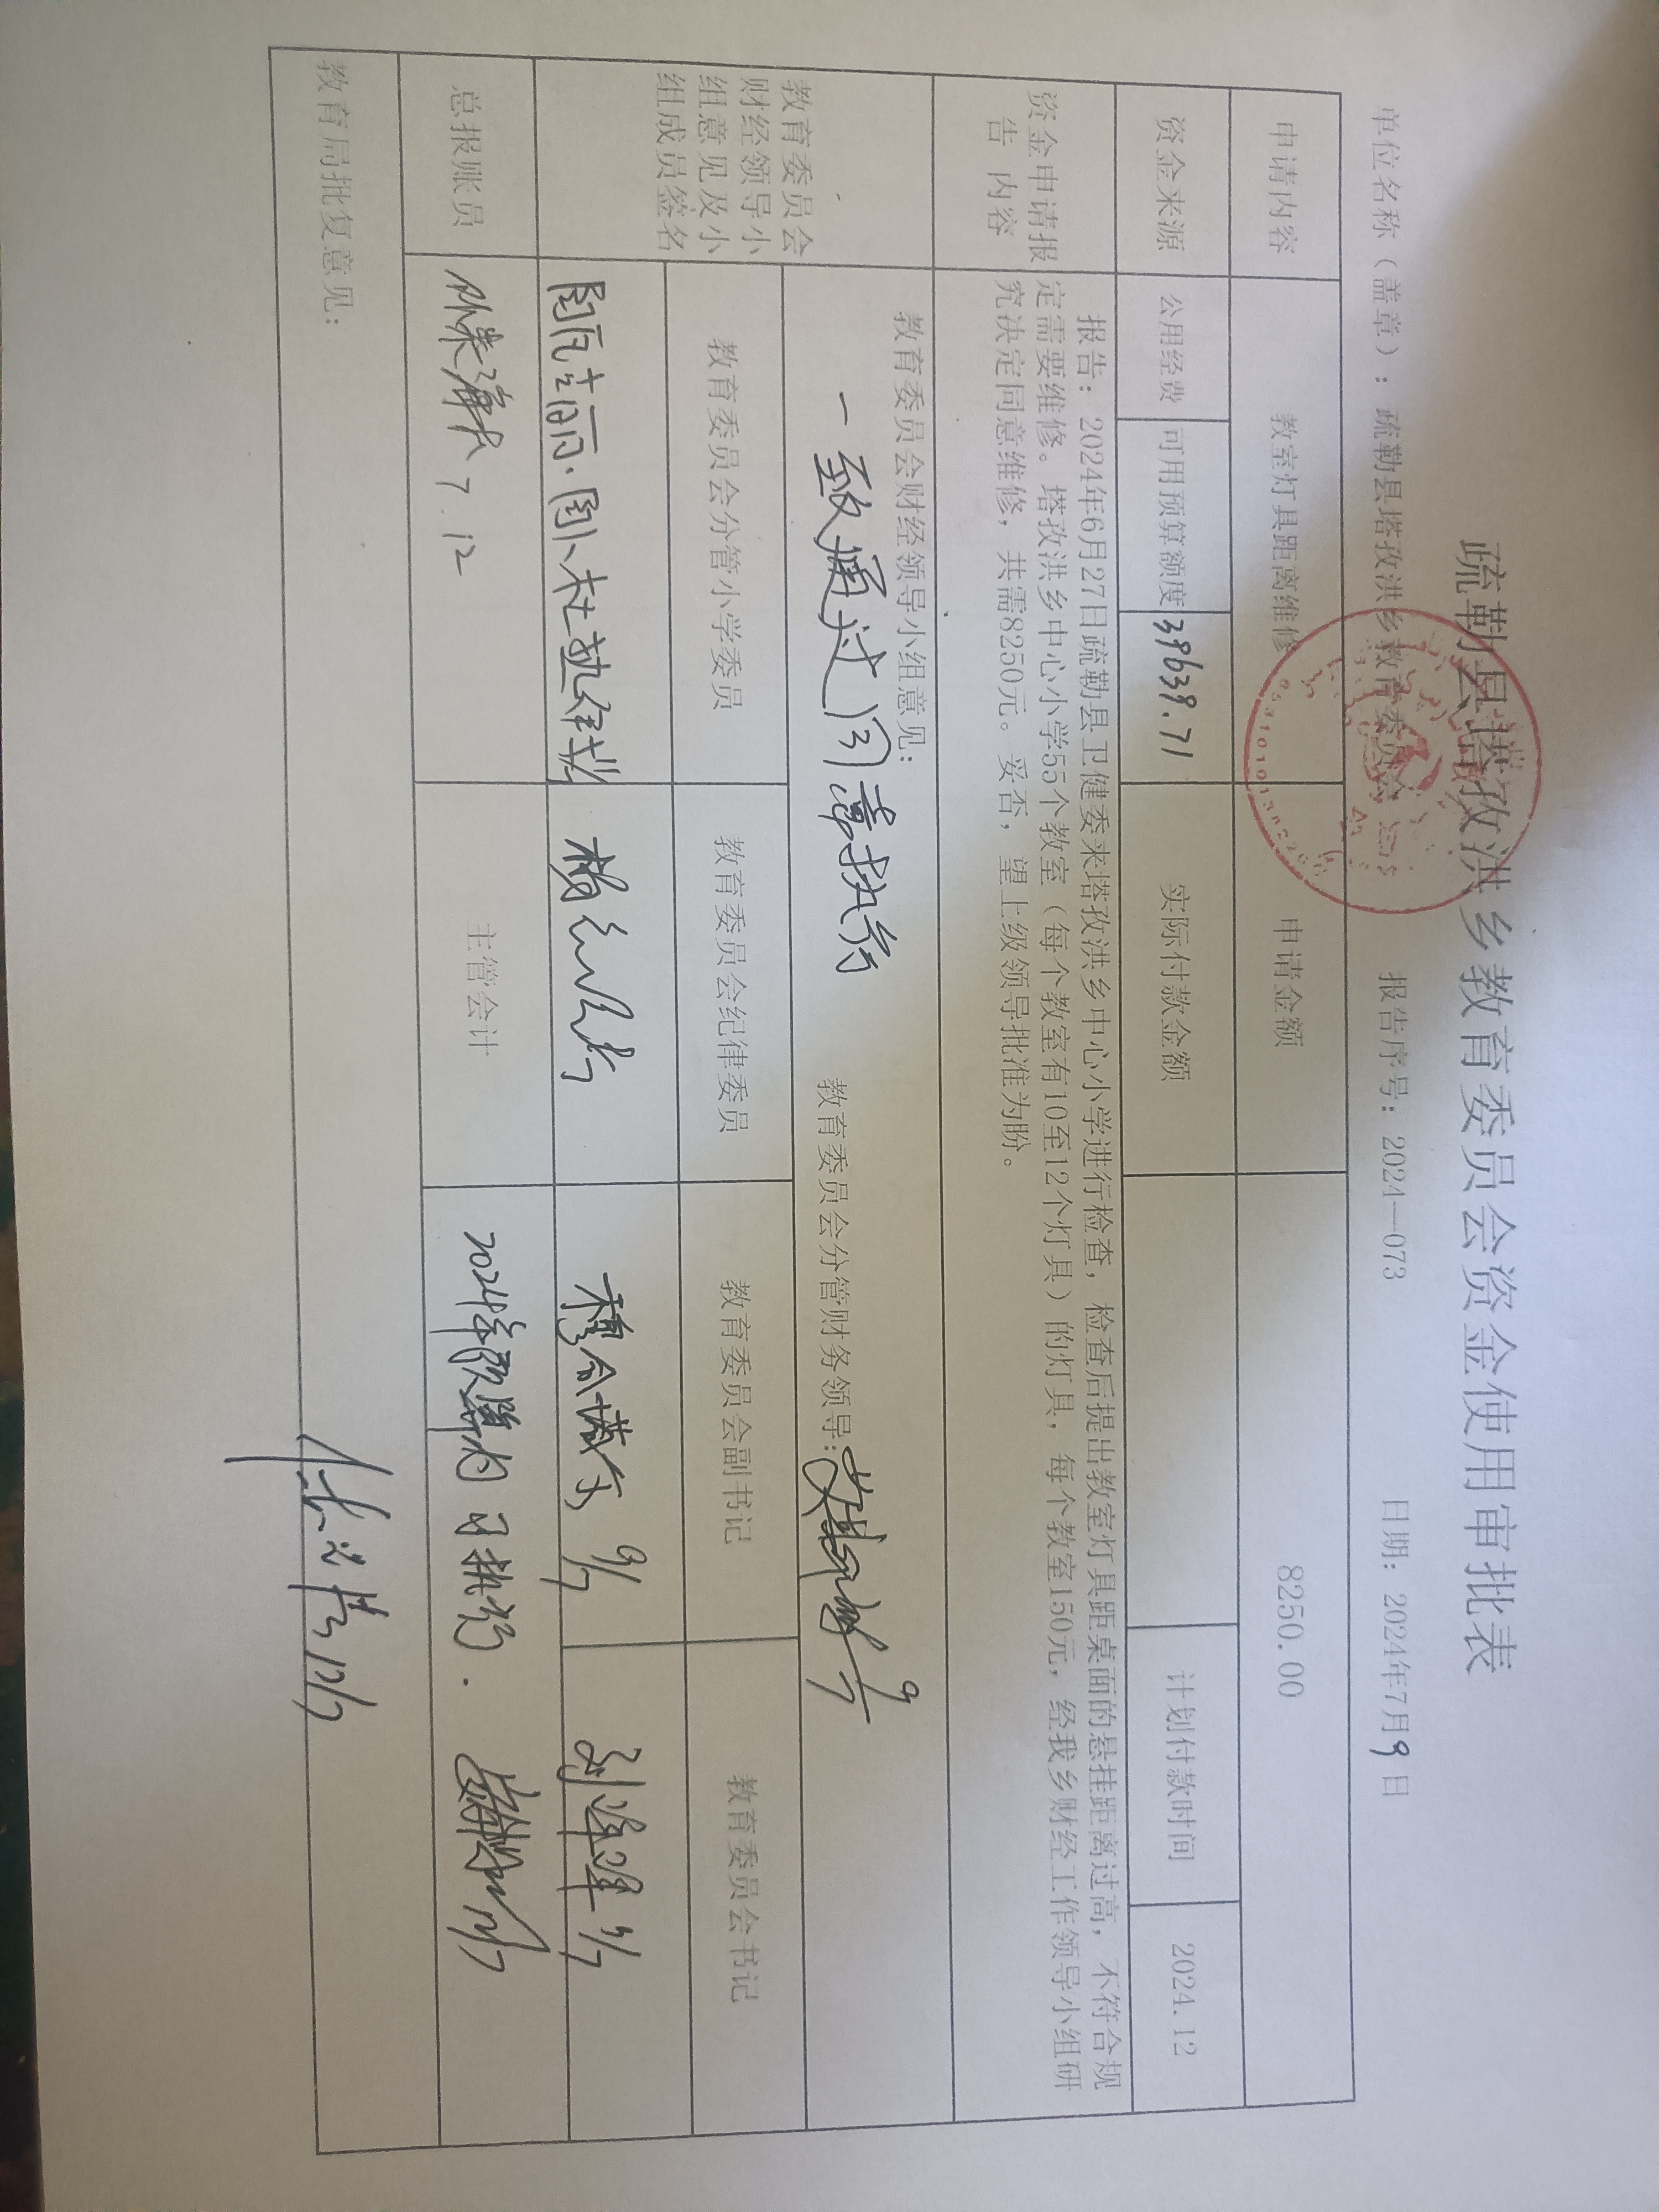 疏勒县塔孜洪乡教育委员会资金使用审批表
单位名称（盖章）：疏勒县塔孜洪乡教育委员会 报告序号：2024—073 日期：2024年7月9日
申请内容 教室灯具距离维修 申请金额 8250.00
资金来源 公用经费 可用预算额度 39639.71 实际付款金额 计划付款时间 2024.12
资金申请报告 内容
报告：2024年6月27日疏勒县卫健委来塔孜洪乡中心小学进行检查，检查后提出教室灯具距桌面的悬挂距离过高，不符合规
定需要维修。塔孜洪乡中心小学55个教室（每个教室有10至12个灯具）的灯具，每个教室150元，经我乡财经工作领导小组研
究决定同意维修，共需8250元。妥否，望上级领导批准为盼。
教育委员会
财经领导小
组意见及小
组成员签名
教育委员会财经领导小组意见：
一致通过 同意执行
教育委员会分管财务领导： 9/7
教育委员会分管小学委员 教育委员会纪律委员 教育委员会副书记 教育委员会书记
9/7 9/7
总报账员 7.12 主管会计 2024年预算内可执行. 12/7
教育局批复意见：
12/7